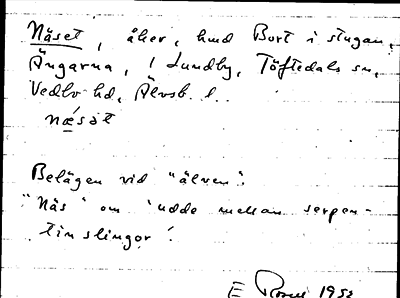 Näset, åker, hmd Bort i stugan,
Ängarna, 1 Lundby, Töftedals sn,
Vedbo hd, Älvsb. l.
næ̀sət
Belägen vid "älven".
"Näs" om udde mellan serpen-
tinslingor!
E 1952